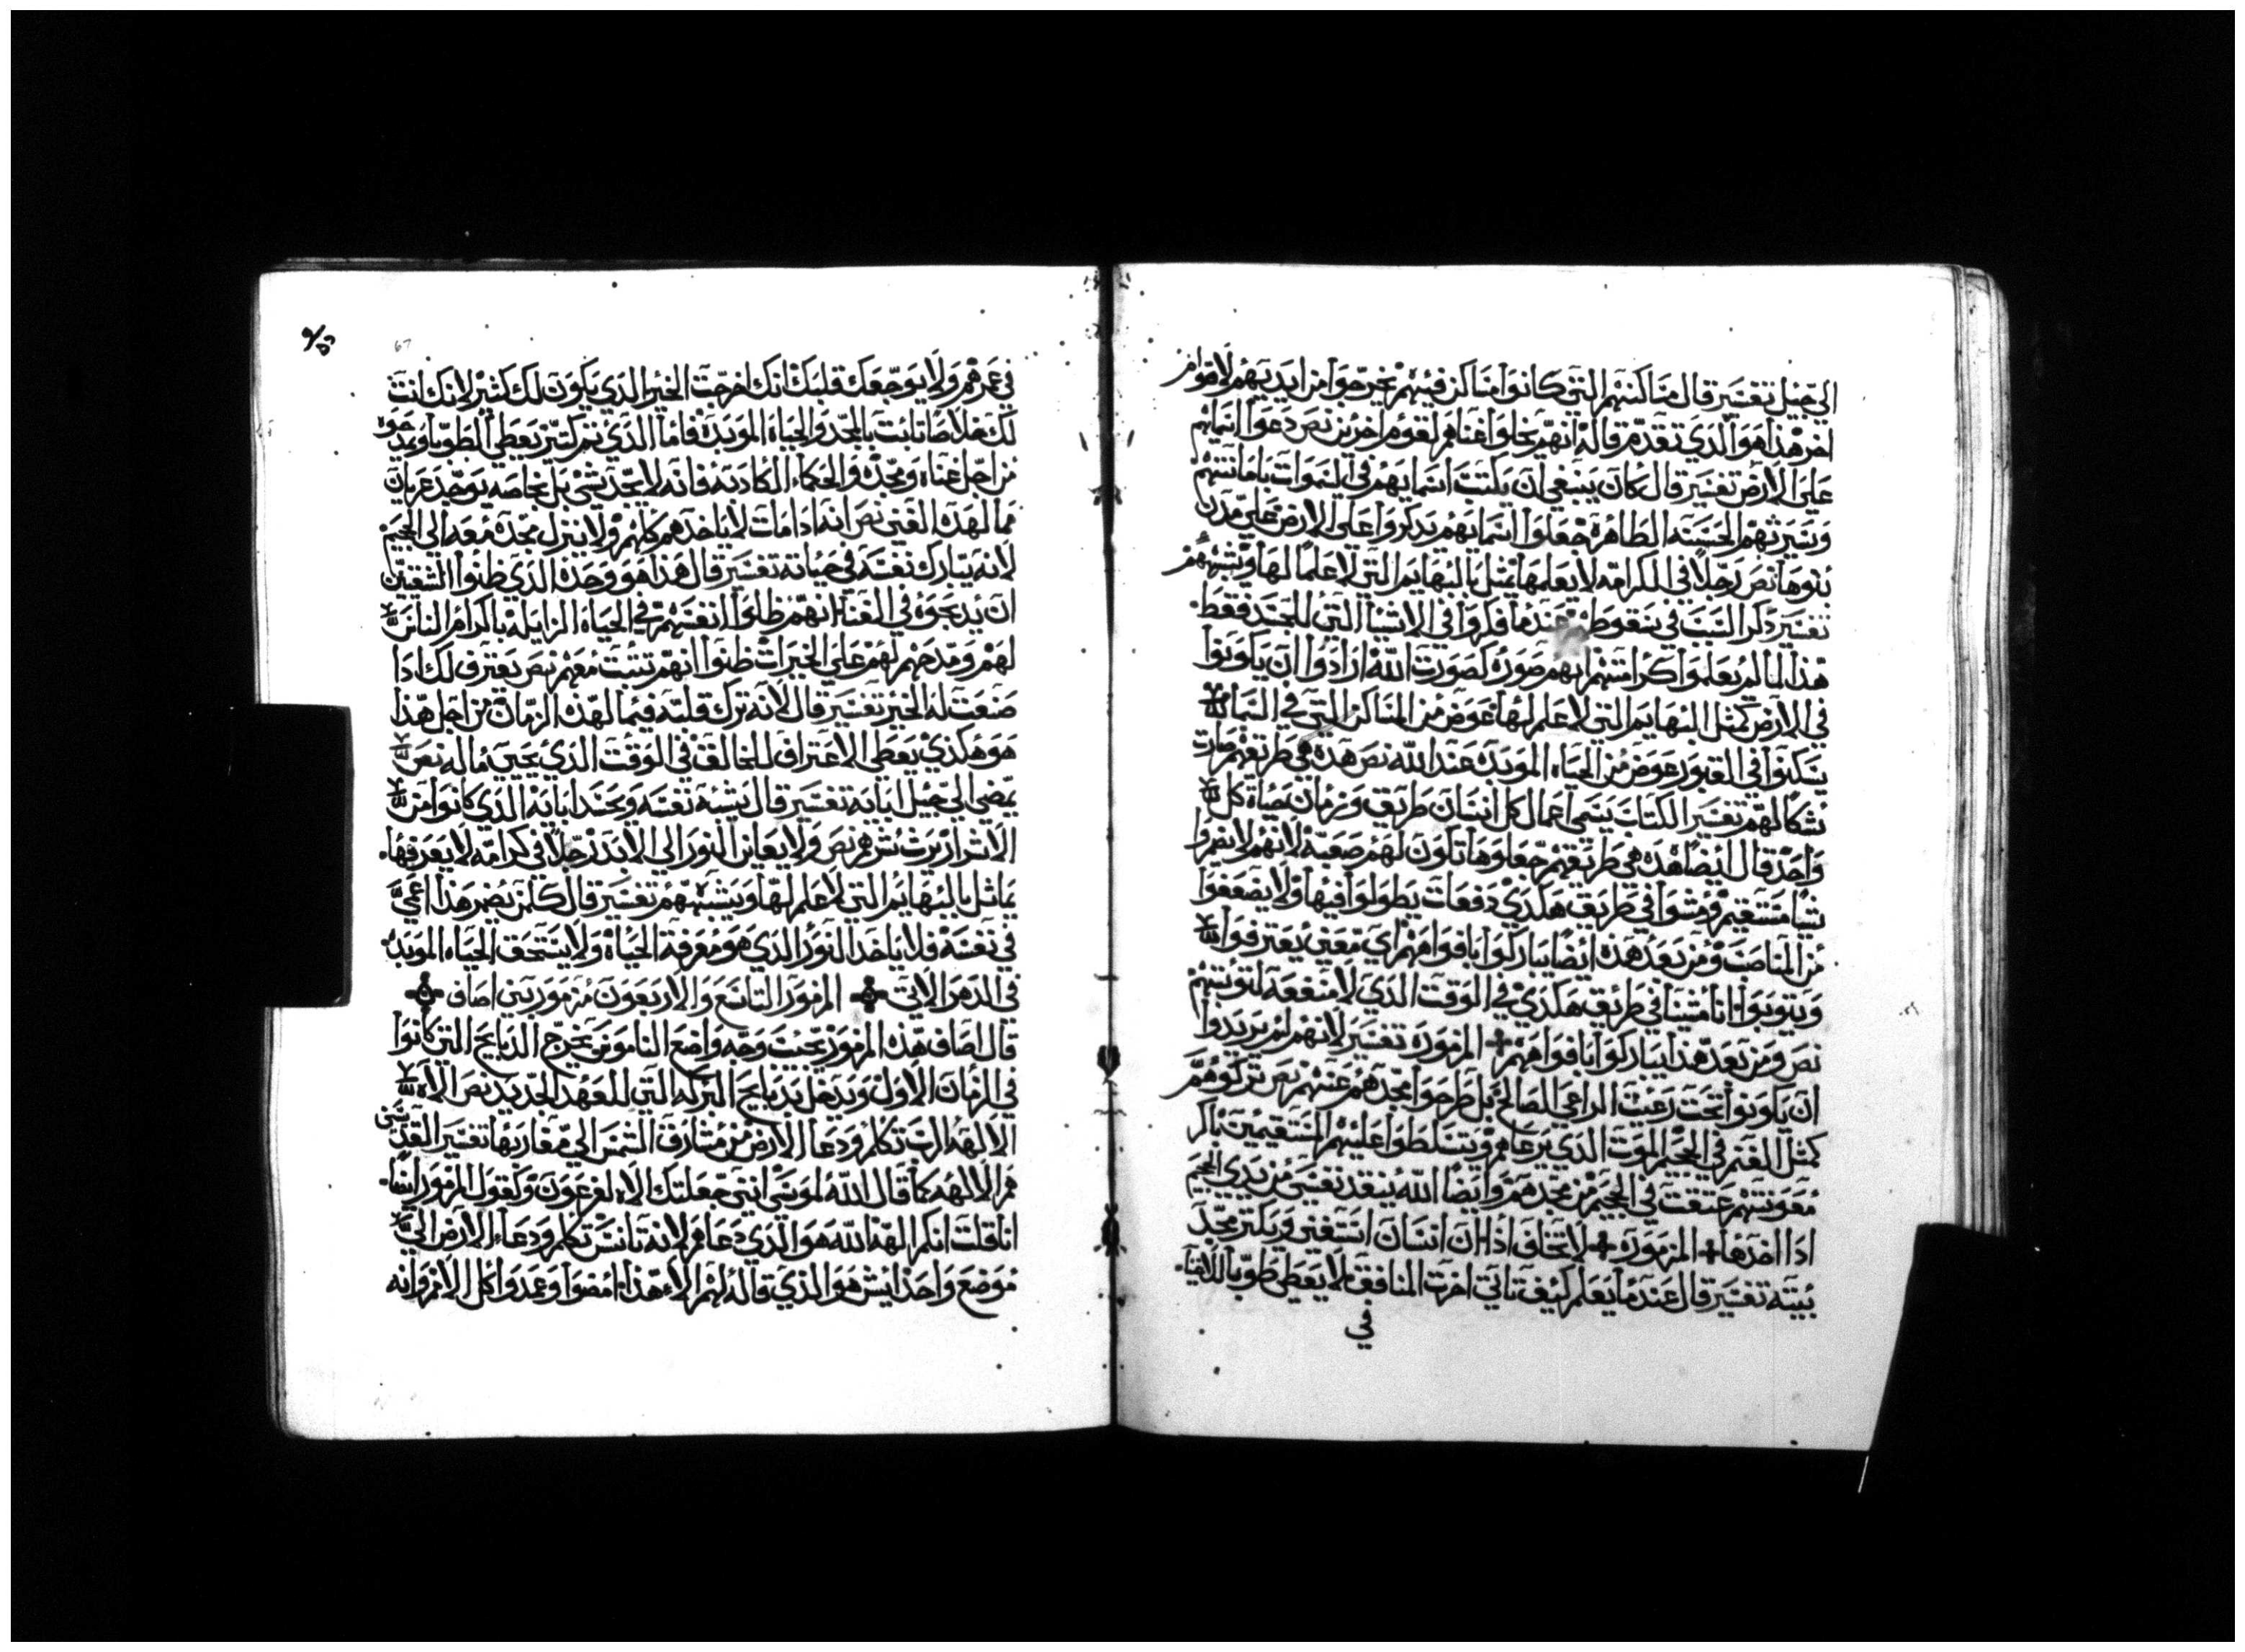 الي جيل تفسير قال مساكنهم التي كانوا ساكن فيهم يخرجوا من ايديهم لاقوام
اخر هذا هو الذي تقدم قاله انهم يخلوا غناهم لقوم اخرين نص دعوا اسماهم
على الارض تفسير قال كان ينبغي ان يكتب اسمايهم في السموات بامانتهم
وسيرتهم الحسنه الطاهرة جعلوا اسمايهم يدكروا على الارض على مدن
بنوها نص رجلا في الكرامه لا يعلمها يمثل بالبهايم التي لا علما لها ويشبههم
تفسير دكر السبب في سقوطهم عندما فكروا في الاشيا التي للجسد فقط
هذا لما لم يعلموا كرامتهم انهم صورة كصورت الله ارادوا ان يكونوا
في الارض كمثل البهايم التي لا علم لها عوض من المساكن التي في السما
يسكنوا في القبور عوض من الحياه الموبده عند الله نص هده هي طريقهم صارت
شكا لهم تفسير الكتاب يسمى اعمال كل انسان طريق وزمان حياة كل
واحد قال ايضا هده هي طريقهم جعلوها تكون لهم صعبه لانهم لا نصروا
شيا مستقيم ومشوا في طريق هكدي دفعات يطولوا فيها ولا يضعفوا
من المناصب ومن بعد هده ايضا يباركوا بافواههم اي معني يعترفوا
ويتوبوا اننا مشينا في طريق هكدي في الوقت الدي لا منفعه لتوبتهم
نص ومن بعد هذا يباركوا بافواههم المزمورة تفسير لانهم لم يريدوا
ان يكونوا تحت رعيت الراعي الصالح بل طرحوا مجدهم عنهم نص تركوهم
كمثل الغنم في الجحيم الموت الدي يرعاهم ويتسلطوا عليهم المستقيمين باكر
معونتهم عتقت في الجحيم من مجدهم وايضا الله ينقد نفسي من يدي الجحيم
ادا اخدها المزموره لا تخاف ادا ان انسان استغني ويكتر مجد
بيته تفسير قال عندما يعلم كيف تاتي اخرت المنافق لا يعطى طوبا للاغنيا
في
في عمرهم ولا يوجعك قلبك انك اخرجت الخير الدي يكون لك كثير لانك انت
لك خلاصا ثابت بالمجد والحياة الموبدة فاما الدي تم كتير يعطي الطوبا ويمدحوه
من اجل غناه ومجده والحكماء الكادبه فانه لا يجد شي بل بخاصه يوجد عريان
مما لهده الغنى نص انه ادا مات لا ياخدهم كلهم ولا ينزل مجده معه الى الجحيم
لانه يبارك نفسه في حياته تفسير قال هذا هو وحده الدي ظنوا الشقيين
ان يدبحوه في الغنا انهم ظلوا انفسهم في الحياة الزايله باكرام الناس
لهم ومدحهم لهم على الخيرات ظنوا انهم تثبت معهم نص يعترف لك ادا
صنعت له الخير تفسير قال لانه ترك قلبه فيما لهذه الزمان من اجل هذا
هو هكدي يعطى الاعتراف للخالق في الوقت الدي يحيي ماله نص
يمضي الي جيل ابايه تفسير قال يشبه نفسه ويحسد ابايه الدي كانوا من
الاشرار يرث شرهم نص ولا يعاين النور الى الابد رجلا في كرامه لا يعرفها
يماثل بالبهايم التي لا علم لها ويشبههم تفسير قال كلمن يضمر هذا اعمي
في نفسه فلا ياخد النور الدي هو معرفة الحياة ولا يستحق الحياه الموبده
في الدهر الاتي المزمور التاسع والاربعون مزمورين اصاف
قال لصاف هذه المزمور بحيت وجه واضع الناموس يخرج الدبايح التي كانوا
في الزمان الاول ويدخل بدبايح البركه التي للعهد الجديد نص الاه
الالهه الرب تكلم ودعا الارض من مشارق الشمس الى مغاربها تفسير القديسين
هم الالهه كما قال الله لموسى انني جعلتك الاه لفرعون ولقول المزمور ايضا
انا قلت انكم الهه الله هو الذي دعاهم لانه تانس تكلم ودعا الارض الى
موضع واحد ايش هو الذي قاله لهم الا هذا امضوا وعمدوا كل الامم وانه